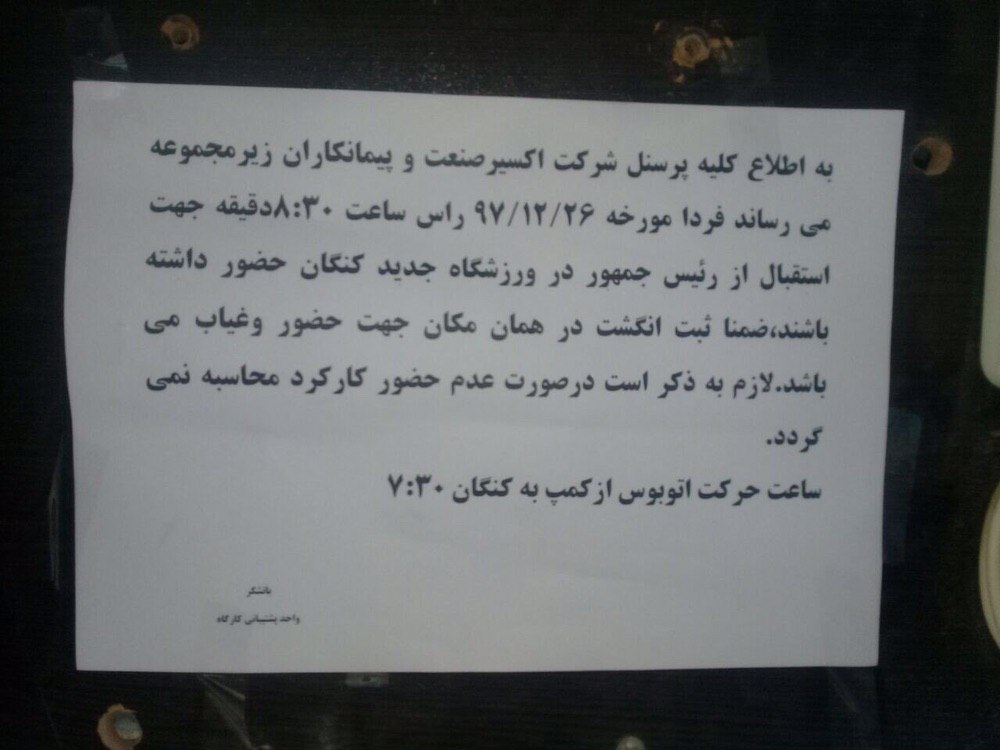 به اطلاع کلیه پرسنل شرکت اکسیرصنعت و پیمانکاران زیرمجموعه
می رساند فردا مورخه ۹۷/۱۲/۲۶ راس ساعت ۸:۳۰دقیقه جهت
استقبال از رئیس جمهور در ورزشگاه جدید کنگان حضور داشته
باشند،ضمنا ثبت انگشت در همان مکان جهت حضور وغیاب می
باشد.لازم به ذکر است درصورت عدم حضور کارکرد محاسبه نمی
گردد.
ساعت حرکت اتوبوس ازکمپ به کنگان ۷:۳۰
باتشکر
واحد پشتیبانی کارگاه